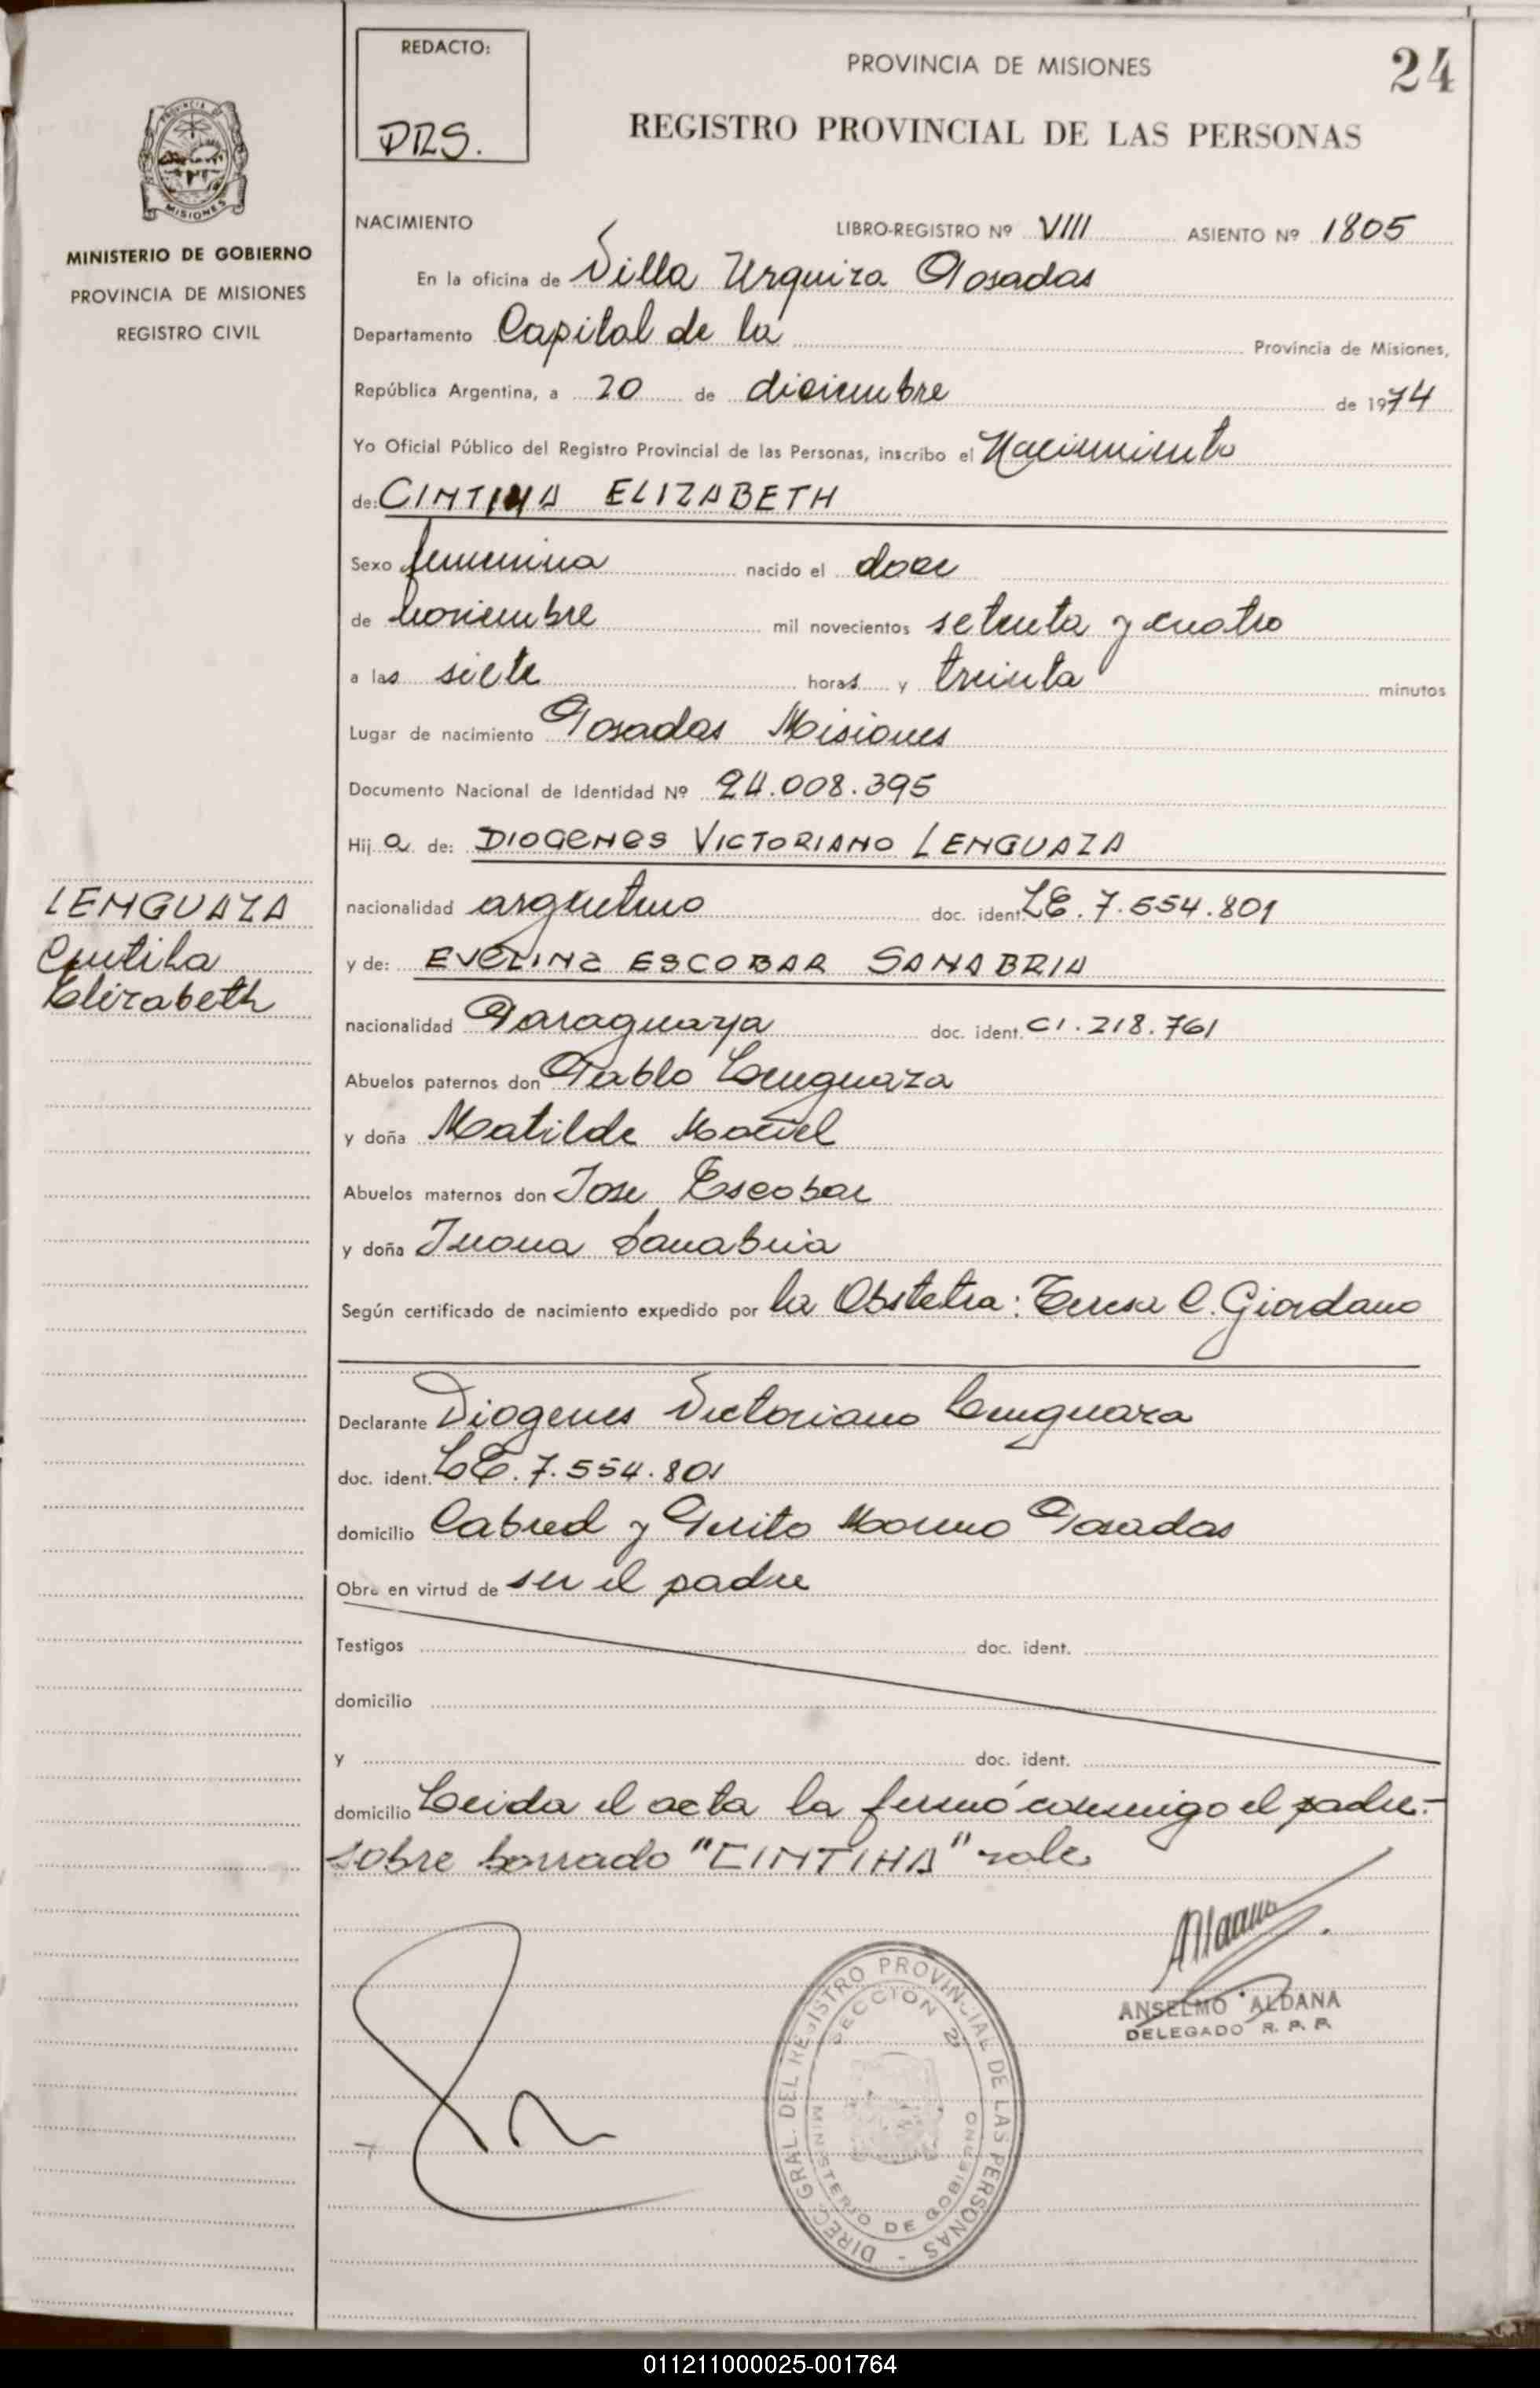 REDACTO:
DRS.
PROVINCIA DE MISIONES
24
REGISTRO PROVINCIAL DE LAS PERSONAS
PROVINCIA DE
MISIONES
MINISTERIO DE GOBIERNO
PROVINCIA DE MISIONES
REGISTRO CIVIL
NACIMIENTO LIBRO-REGISTRO Nº VIII ASIENTO Nº 1805
En la oficina de Villa Urquiza Posadas
Departamento Capital de la Provincia de Misiones,
República Argentina, a 20 de diciembre de 1974
Yo Oficial Público del Registro Provincial de las Personas, inscribo el Nacimiento
de: CINTIHA ELIZABETH
Sexo femenina nacido el doce
de noviembre mil novecientos setenta y cuatro
a las siete horas y treinta minutos
Lugar de nacimiento Posadas Misiones
Documento Nacional de Identidad Nº 24.008.395
Hij a de: DIOGENES VICTORIANO LENGUAZA
nacionalidad argentino doc. ident. LE. 7.554.801
y de: EVELINA ESCOBAR SANABRIA
nacionalidad Paraguaya doc. ident. CI. 218.761
Abuelos paternos don Pablo Lenguaza
y doña Matilde Maciel
Abuelos maternos don Jose Escobar
y doña Juana Sanabria
Según certificado de nacimiento expedido por la Obstetra: Teresa C. Giordano
LENGUAZA
Cintiha
Elizabeth
Declarante Diogenes Victoriano Lenguaza
doc. ident. LE. 7.554.801
domicilio Cabred y Perito Moreno Posadas
Obra en virtud de ser el padre
Testigos doc. ident.
domicilio
y doc. ident.
domicilio Leida el acta la firmó conmigo el padre.-
Sobre borrado "CINTIHA" vale
ANSELMO ALDANA
DELEGADO R. P. P.
DIREC. GRAL. DEL REGISTRO PROVINCIAL DE LAS PERSONAS -
SECCION 2ª
MINISTERIO DE GOBIERNO
011211000025-001764